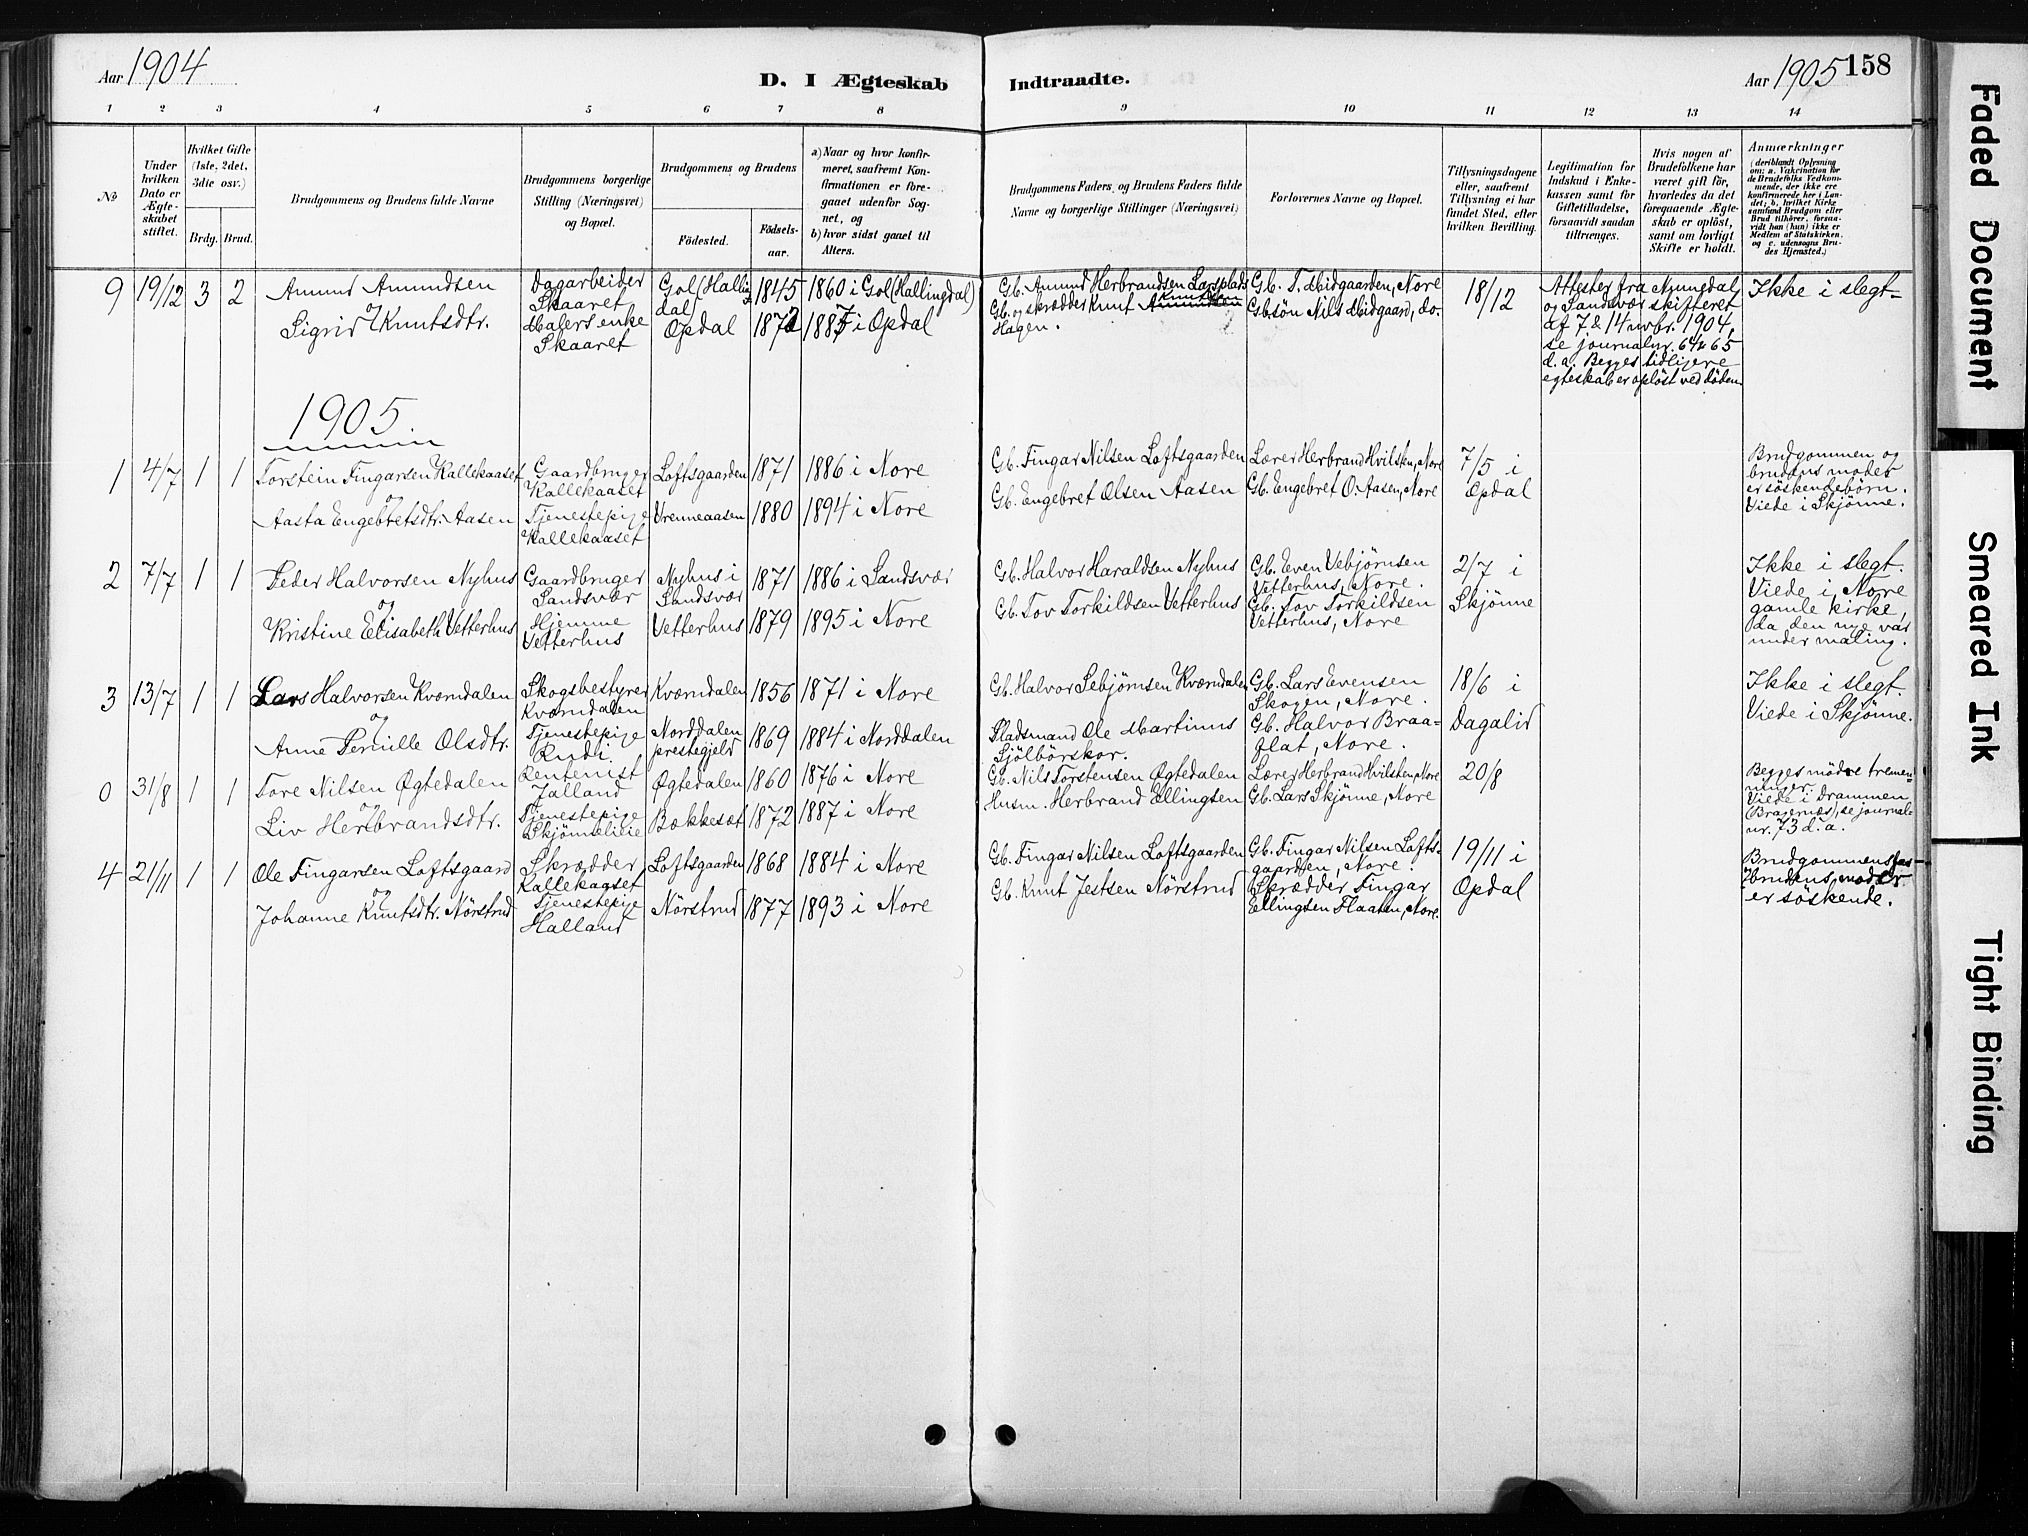 Aar 1904
D. I Ægteskab Indtraadte.
Aar 1905 158
1 2 3 4 5 6 7 8 9 10 11 12 13 14
№
Under hvilken Dato er Ægteskabet stiftet.
Hvilket Gifte (1ste, 2det, 3die osv.)
Brdg. Brud.
Brudgommens og Brudens fulde Navne
Brudgommens borgerlige Stilling (Næringsvei) og Bopæl.
Brudgommens og Brudens
Fødested.
Fødselsaar.
a) Naar og hvor konfirmeret, saafremt Konfirmationen er foregaaet udenfor Sognet, og
b) hvor sidst gaaet til Alters.
Brudgommens Faders, og Brudens Faders fulde Navne og borgerlige Stillinger (Næringsvei)
Forlovernes Navne og Bopæl.
Tillysningsdagene eller, saafremt Tillysning ei har fundet Sted, efter hvilken Bevilling.
Legitimation for Indskud i Enkekassen samt for Giftetilladelse, forsaavidt saadan tiltrænges.
Hvis nogen af Brudefolkene har været gift før, hvorledes da det foregaaende Ægteskab er opløst, samt om lovligt Skifte er holdt.
Anmærkninger
(deriblandt Oplysning om: a. Vakcination for de Brudefolks Vedkommende, der ikke ere konfirmerede her i Landet; b. hvilket Kirkesamfund Brudgom eller Brud tilhører, forsaavidt han (hun) ikke er Medlem af Statskirken, og c. udensogns Brudes Hjemsted.)
9 19/12 3 2
Amund Amundsen
og
Sigrid Knutsdtr.
Dagarbeider
Skaaret
Malers enke
Skaaret
Gol (Hallingdal)
Opdal
1845
1872
1860 i Gol (Hallingdal)
1887 i Opdal
Gb. Amund Herbrandsen Larsplads
Gb. og skrædder Knut Amundsen
Knutsen
Hagen.
Gb. T. Midgaarden, Nore
Gbsøn Nils Midgaard, do.
18/12
Attester fra Numedal
og Sandsvær skifteret
af 7 & 14 novbr. 1904,
se journalnr. 64 & 65
d. a. Begges tidligere
egteskab er opløst ved døden.
Ikke i slegt
1905.
1 4/7 1 1
Torstein Fingarsen Kallekaaset
og
Aasta Engebretsdtr. Aasen
Gaardbruger
Kallekaaset
Tjenestepige
Kallekaaset
Loftsgaarden
Vrenneaasen
1871
1880
1886 i Nore
1894 i Nore
Gb. Fingar Nilsen Loftsgaarden
Gb. Engebret Olsen Aasen
Lærer Herbrand Hvilsten, Nore
Gb. Engebret O. Aasen, Nore
7/5 i
Opdal
Brudgommen og
brudens moder
er søskendebørn.
Viede i Skjønne.
2 7/7 1 1
Peder Halvorsen Nyhus
og
Kristine Elisabeth Vetterhus
Gaardbruger
Sandsvær
Hjemme
Vetterhus
Nyhus i
Sandsvær
Vetterhus
1871
1879
1886 i Sandsvær
1895 i Nore
Gb. Halvor Haraldsen Nyhus
Gb. Tov Torkildsen Vetterhus
Gb. Even Vebjørnsen
Vetterhus, Nore.
Gb. Tov Torkildsen
Vetterhus, Nore
2/7 i
Skjønne
Ikke i slegt.
Viede i Nore
gamle kirke,
da den nye var
under maling.
3 13/7 1 1
Lars Halvorsen Kværndalen
og
Anne Pernille Olsdtr.
Skogsbestyrer
Kværndalen
Tjenestepige
Rudi
Kværndalen
Norddalen
prestegjeld
1856
1869
1871 i Nore
1884 i Norddalen
Gb. Halvor Sebjørnsen Kværndalen
Pladsmand Ole Martinus
Sjølbørskor.
Gb. Lars Evensen
Skogen, Nore.
Gb. Halvor Braaflat, Nore.
18/6 i
Dagalid
Ikke i slegt.
Viede i Skjønne.
0 31/8 1 1
Tore Nilsen Øgtedalen
og
Liv Herbrandsdtr.
Rentenist
Jalland
Tjenestepige
Skjønnelieie
Øgtedalen
Bækkesæt
1860
1872
1876 i Nore
1887 i Nore
Gb. Nils Torstensen Øgtedalen
Husm. Herbrand Ellingsen
Lærer Herbrand Hvilsten, Nore
Gb. Lars Skjønne, Nore
20/8
Begges mødre tremenninger.
Viede i Drammen
(Bragernæs), se journalnr. 73 d. a.
4 21/11 1 1
Ole Fingarsen Loftsgaard
og
Johanne Knutsdtr. Nørstrud
Skrædder
Kallekaaset
Tjenestepige
Halland
Loftsgaarden
Nørstrud
1868
1877
1884 i Nore
1893 i Nore
Gb. Fingar Nilsen Loftsgaarden
Gb. Knut Jestsen Nørstrud
Gb. Fingar Nilsen Loftsgaarden, Nore.
Skrædder Fingar
Ellingsen Flaaten, Nore.
19/11 i
Opdal
Brudgommens far
brudens moder
er søskende.
Faded Document
Smeared Ink
Tight Binding